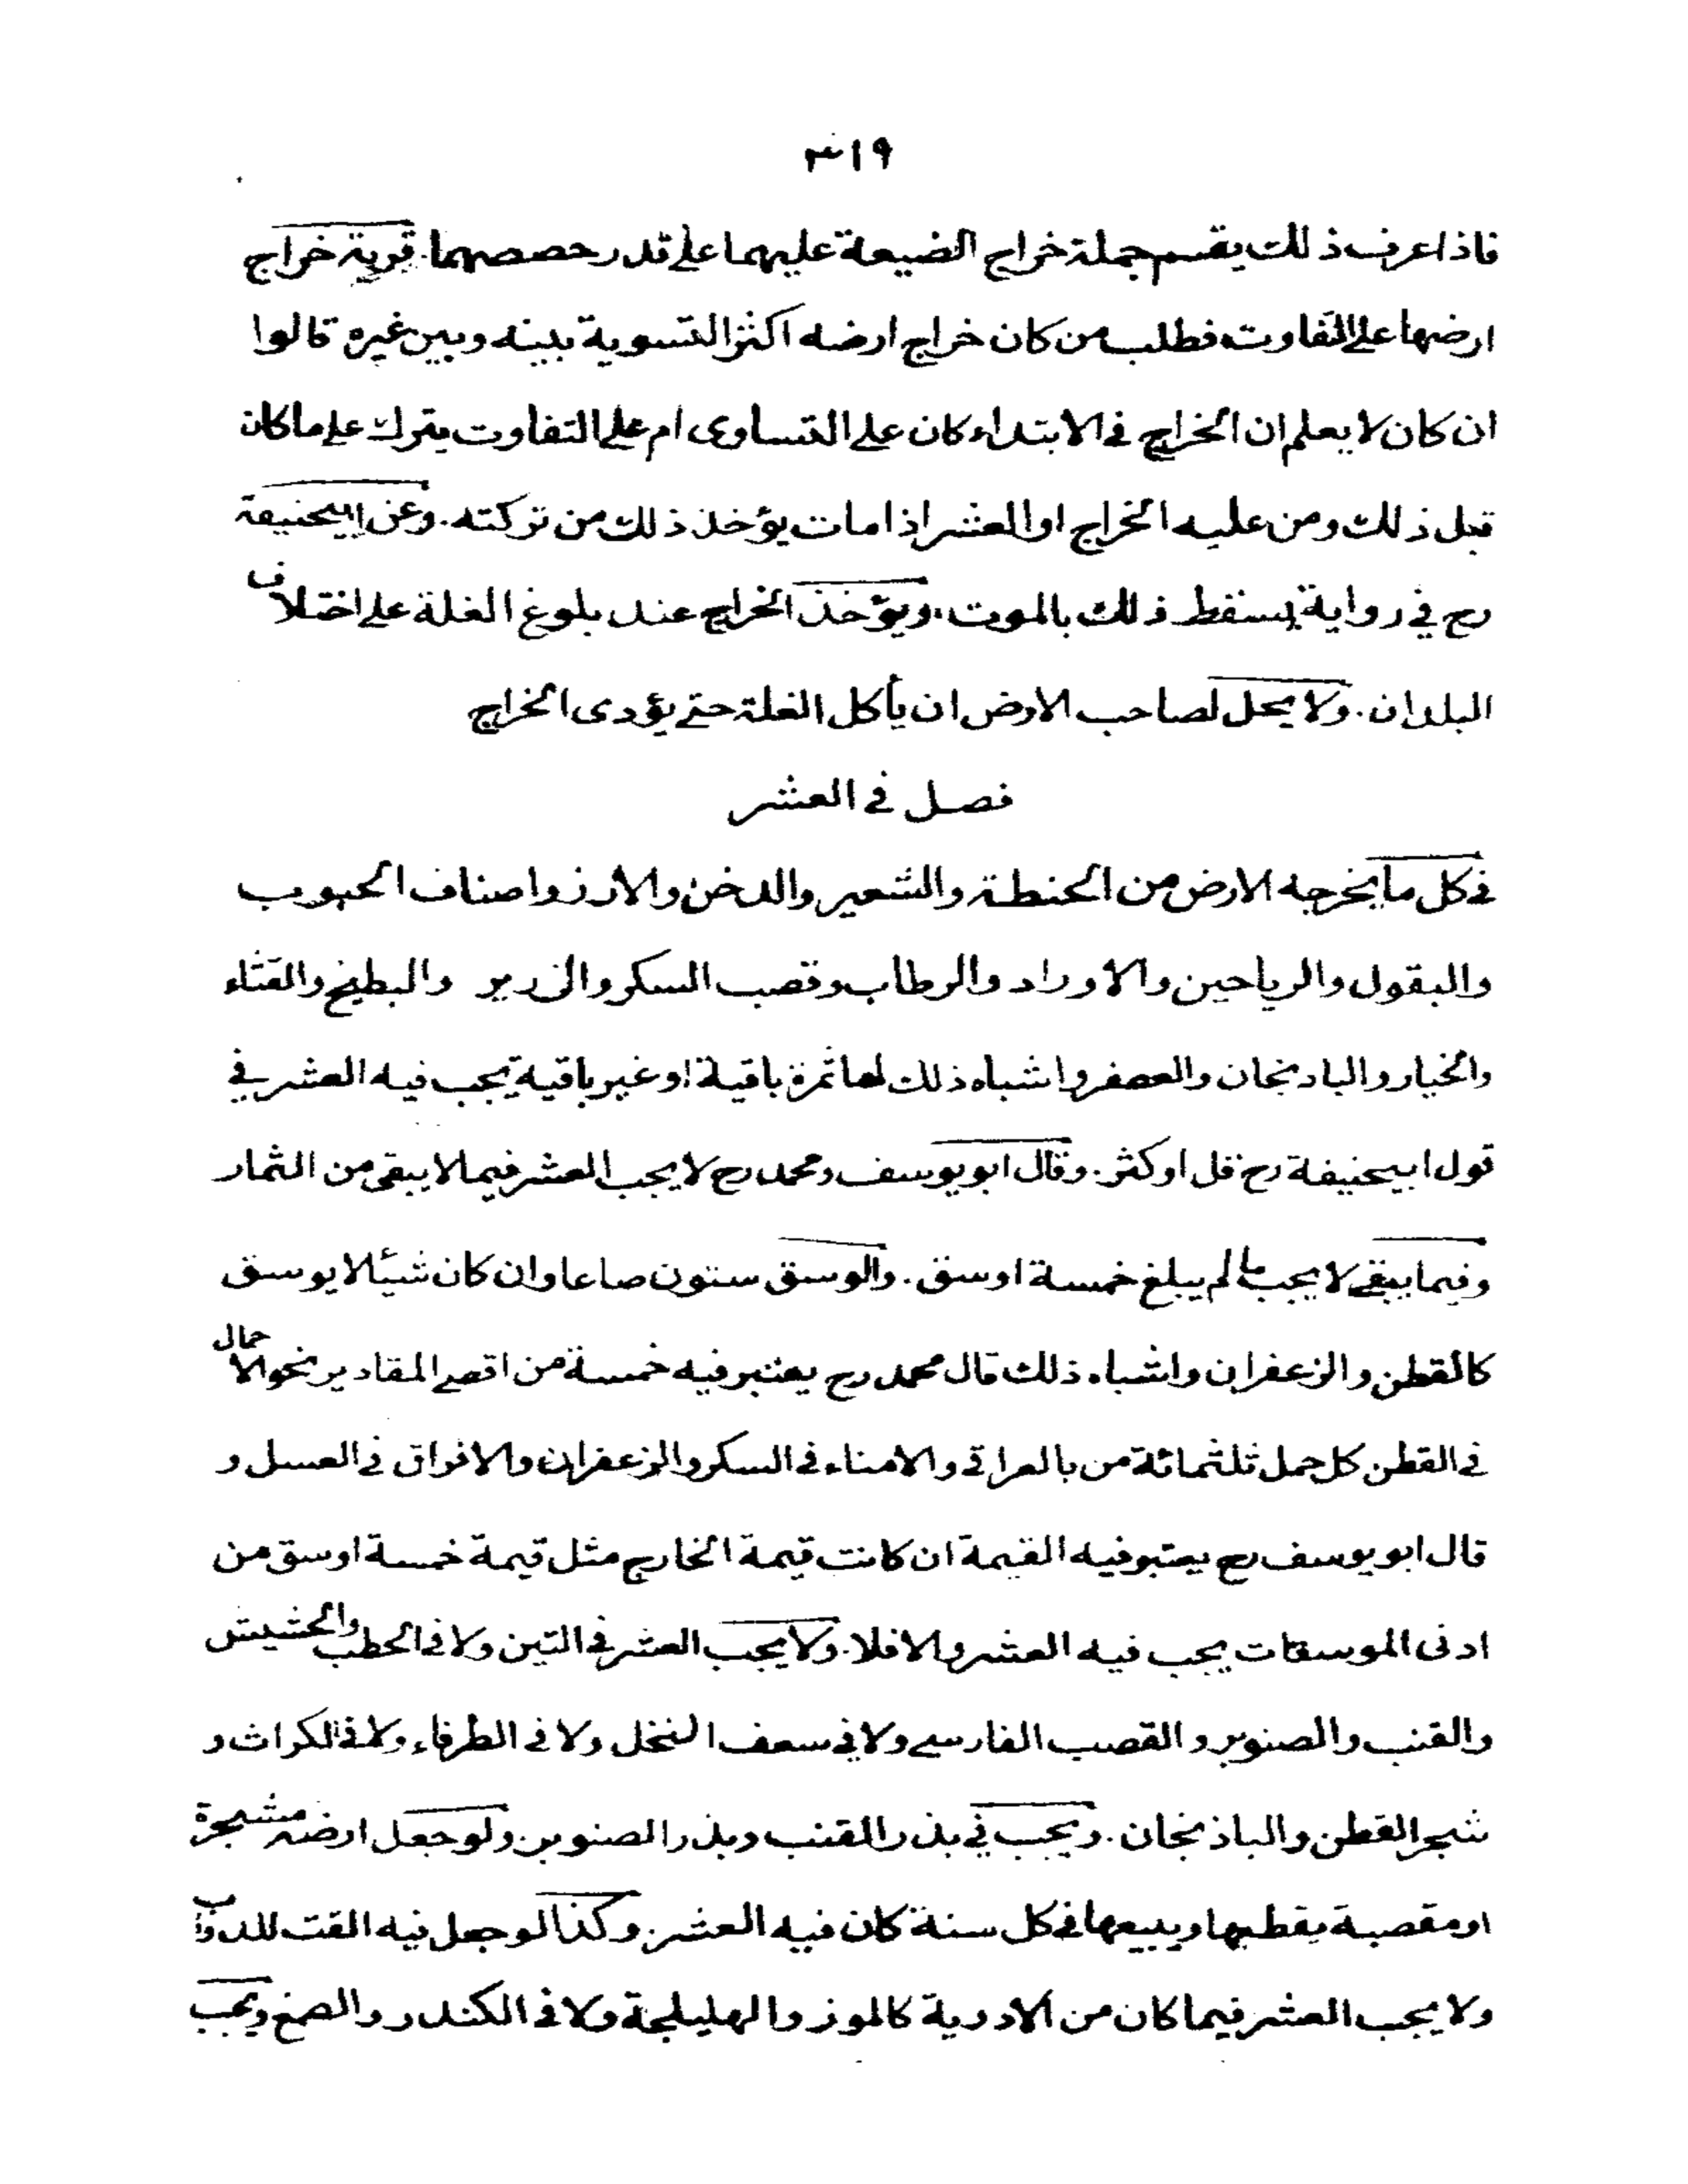 ٣١٩
فاذا عرف ذلك يقسم جملة خراج الضيعة عليهما على قدر حصصهما. قرية خراج
ارضها على التفاوت فطلب من كان خراج ارضه اكثر التسوية بينه وبين غيره قالوا
ان كان لا يعلم ان الخراج فى الابتداء كان على التساوى ام على التفاوت يترك على ما كان
قبل ذلك ومن عليه الخراج او العشر اذا مات يؤخذ ذلك من تركته. وعن ابيحنيفة
رح في رواية يسقط ذلك بالموت، ويؤخذ الخراج عند بلوغ الغلة على اختلاف
البلدان. ولا يحل لصاحب الارض ان يأكل الغلة حتى يؤدى الخراج
فصل فى العشر
فى كل ما يخرجه الارض من الحنطة والشعير والدخن والارز واصناف الحبوب
والبقول والرياحين والاوراد والرطاب وقصب السكر والزرير والبطيخ والقثاء
والخيار والبادنجان والعصفر واشباه ذلك لها ثمرة باقية او غير باقية يجب فيه العشر في
قول ابيحنيفة رح قل او كثر. وقال ابو يوسف ومحمد رح لا يجب العشر فيما لا يبقى من الثمار
وفيما يبقى لا يجب ما لم يبلغ خمسة اوسق. والوسق ستون صاعا وان كان شيئا لا يوسق
كالقطن والزعفران واشباه ذلك قال محمد رح يعتبر فيه خمسة من اقصى المقادير نحو الاحمال
فى القطن كل حمل ثلثمائة من بالعراقى والامناء فى السكر والزعفران والافراق فى العسل و
قال ابو يوسف رح يعتبر فيه القيمة ان كانت قيمة الخارج مثل قيمة خمسة اوسق من
ادنى الموسقات يجب فيه العشر والا فلا. ولا يجب العشر فى التبن ولا فى الحطب والحشيش
والقنب والصنوبر والقصب الفارسى ولا فى سعف النخل ولا فى الطرفاء ولا فى الكراث و
شجر القطن والباذنجان. ويجب في بذر القنب وبذر الصنوبر. ولو جعل ارضه مشجرة
او مقصبة يقطعها ويبيعها فى كل سنة كان فيه العشر. وكذا لو جعل فيه القت للدواب
ولا يجب العشر فيما كان من الادوية كالموز والهليلجة ولا فى الكندر والصمغ ويجب